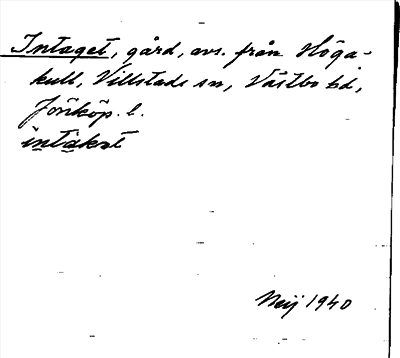 Intaget, gård, avs. från Höga-
kull, Villstads sn, Västbo hd,
Jönköp. l.
intakət
Neij 1940